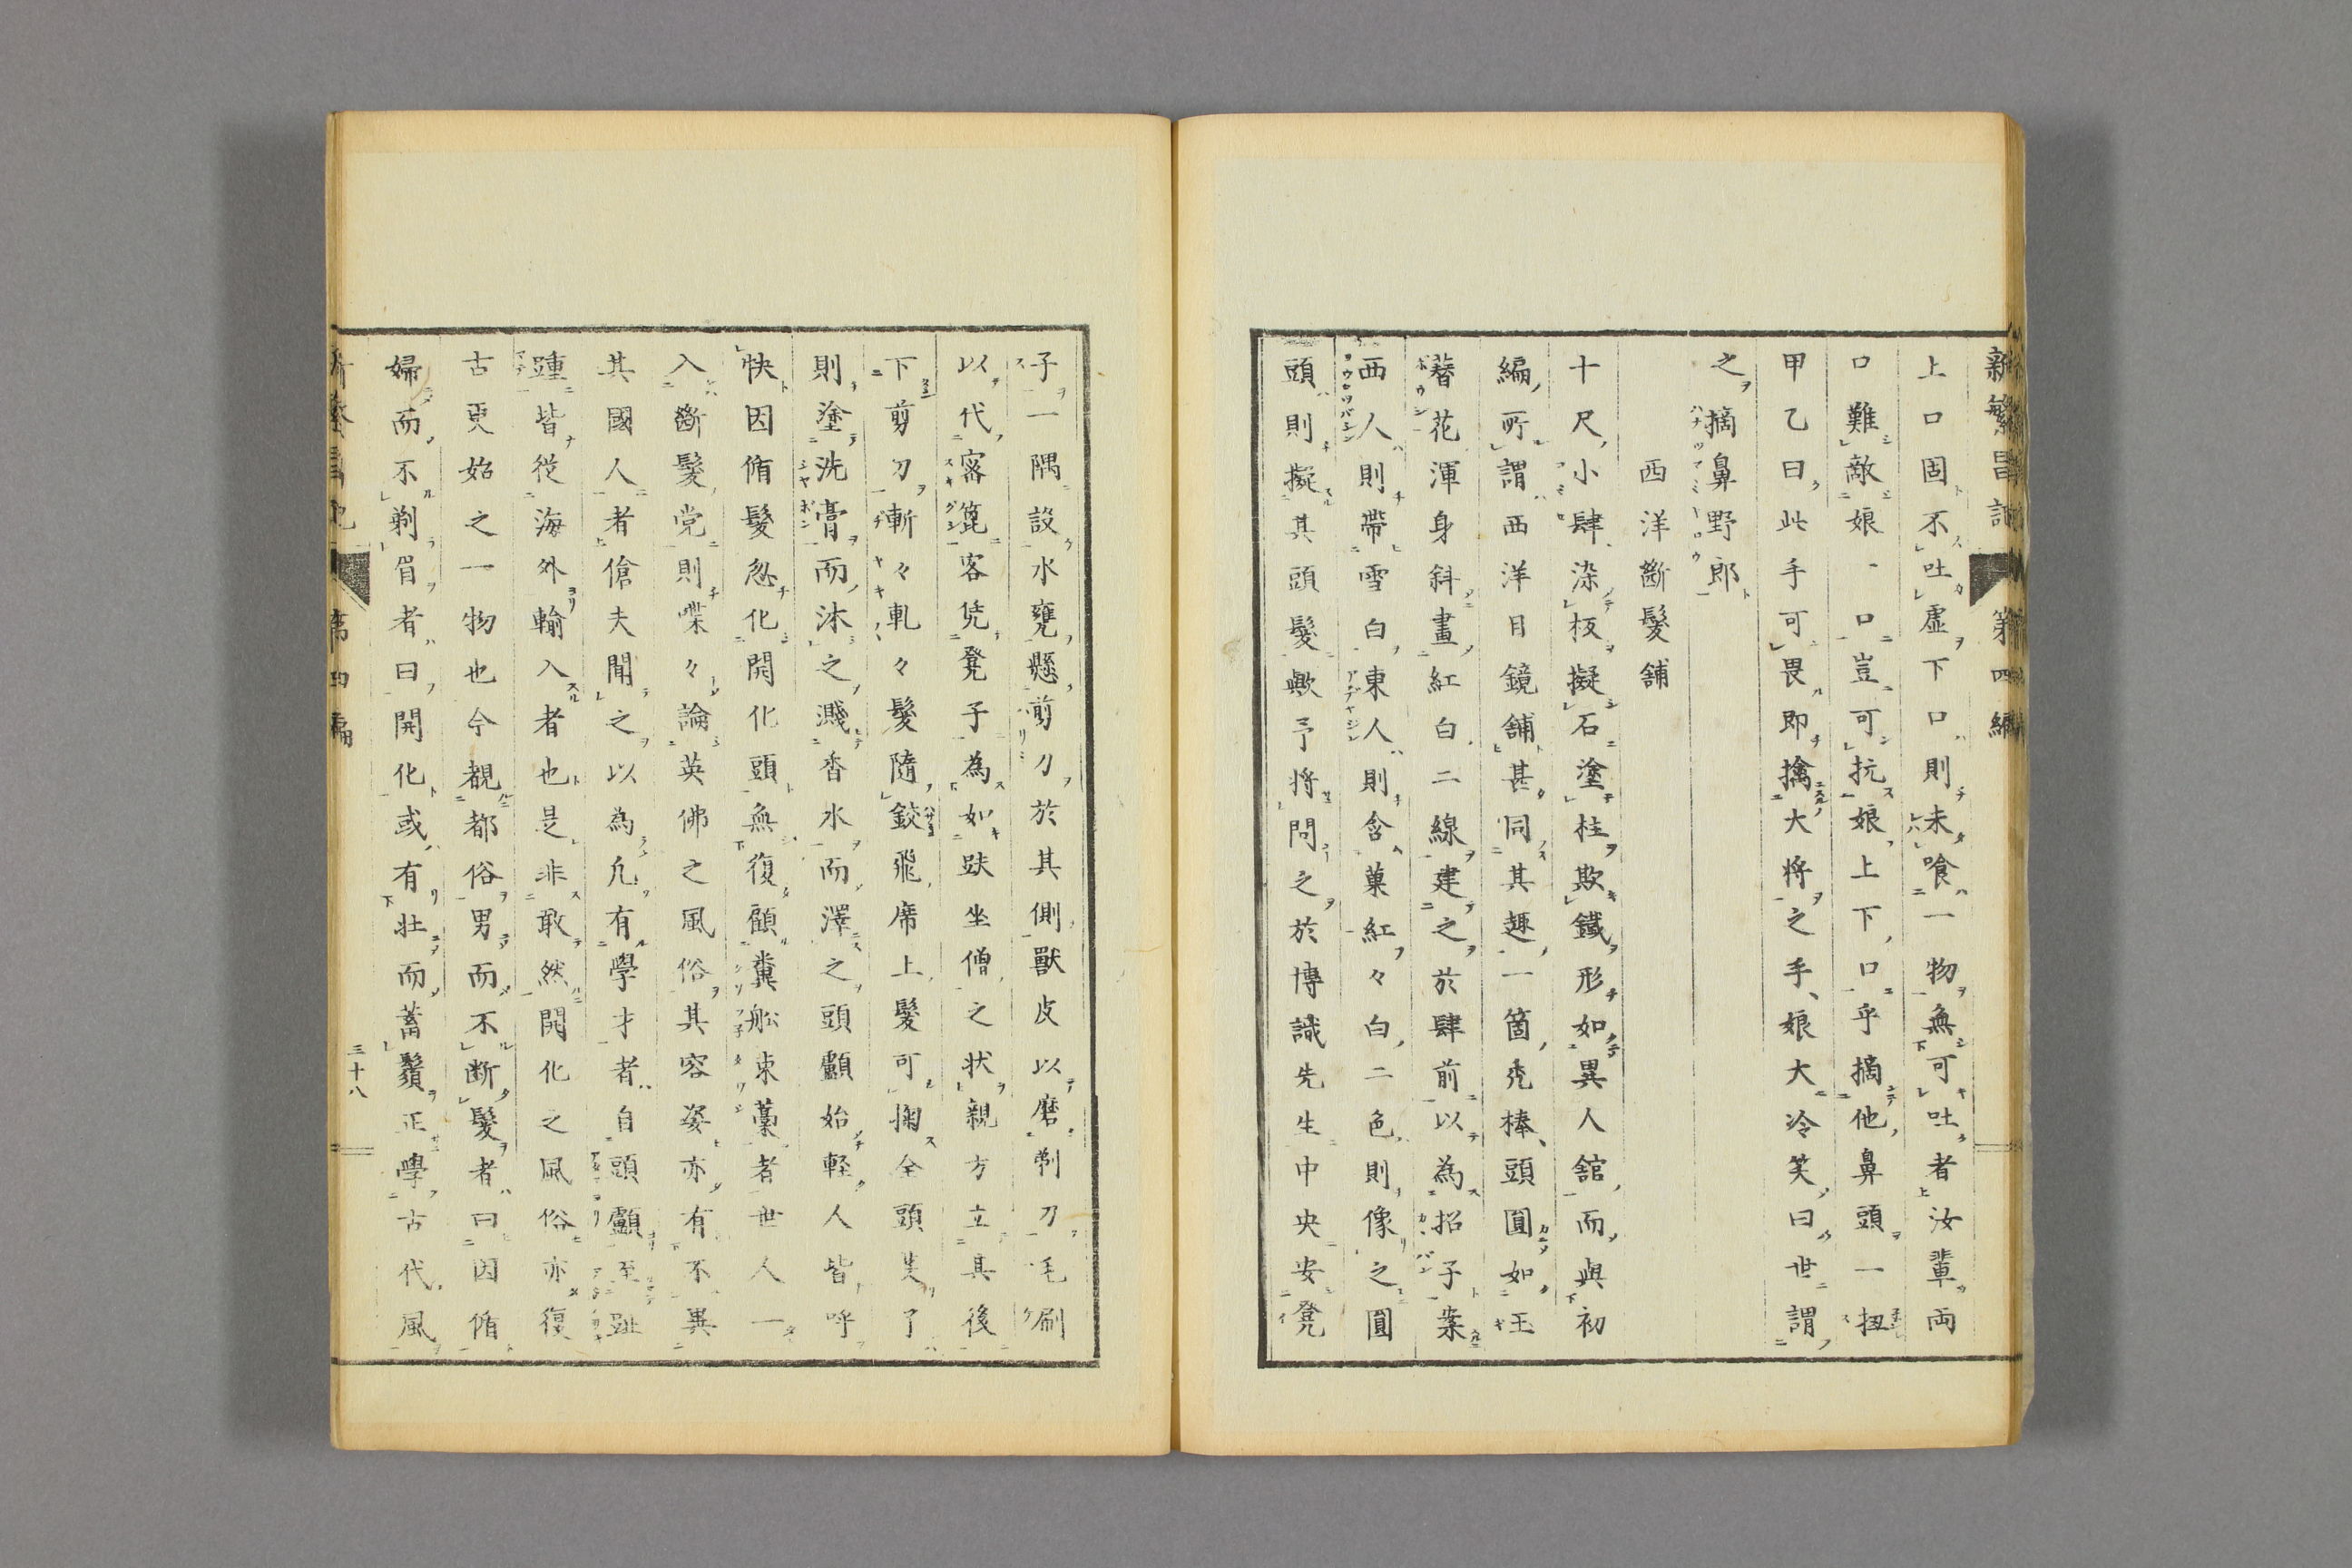 新繁昌記 第四編
上口固不吐虛下口則未喰一物無可吐者汝輩両
口難敵娘一口豈可抗娘上下口乎摘他鼻頭一扭
甲乙曰此手可畏即擒大将之手、娘大冷笑曰世謂
之摘鼻野郎
西洋斷髮舗
十尺小肆、染板擬石塗柱欺鐵形如異人舘而與初
編所謂西洋目鏡舗甚同其趣一箇禿棒、頭圓如玉
簪花渾身斜畫紅白二線建之於肆前以為招子案
西人則帶雪白東人則含菓紅々白二色則像之圓
頭則擬其頭髮歟予将問之於博識先生中央安凳
子一隅設水甕懸剪刀於其側獸皮以磨剃刀毛刷
以代密篦客凭凳子為如趺坐僧之状親方立其後
下剪刀斬々軋々髮隨鋏飛席上髮可掬全頭芟了
則塗洗膏而沐之濺香水而澤之頭顱始輕人皆呼
快因脩髮忽化開化頭無復顧糞舩束藁者世人一
入斷髮党則喋々論英佛之風俗其容姿亦有不異
其國人者傖夫聞之以為凢有學才者自頭顱至趾
踵皆從海外輸入者也是非敢然開化之風俗亦復
古更始之一物也今覩都俗男而不断髮者曰因循
婦而不剃眉者曰開化或有壮而蓄鬚正學古代風
三十八
第四編